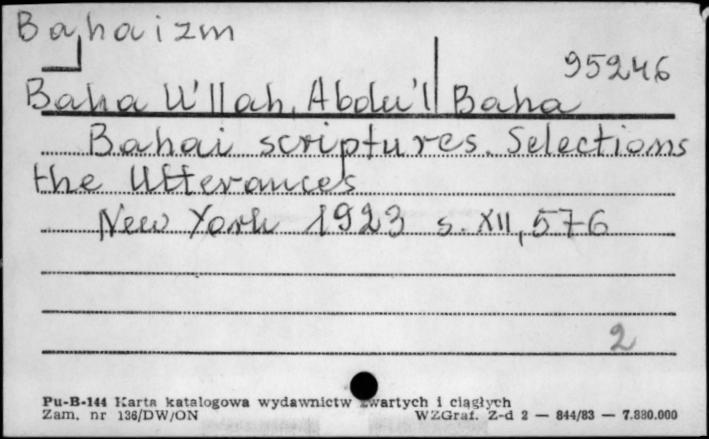 Bahaizm
95246
Baha U'llah, Abdu'l Baha
Bahai scriptures. Selections
the Utterances
New York 1923 s. XII, 576
2
Pu-B-144 Karta katalogowa wydawnictw zwartych i ciągłych
Zam. nr 136/DW/ON WZGraf. Z-d 2 — 844/83 — 7.880.000